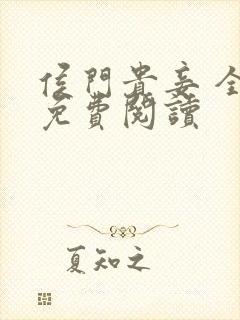 侯門貴妾 全
免費閱讀
夏知之